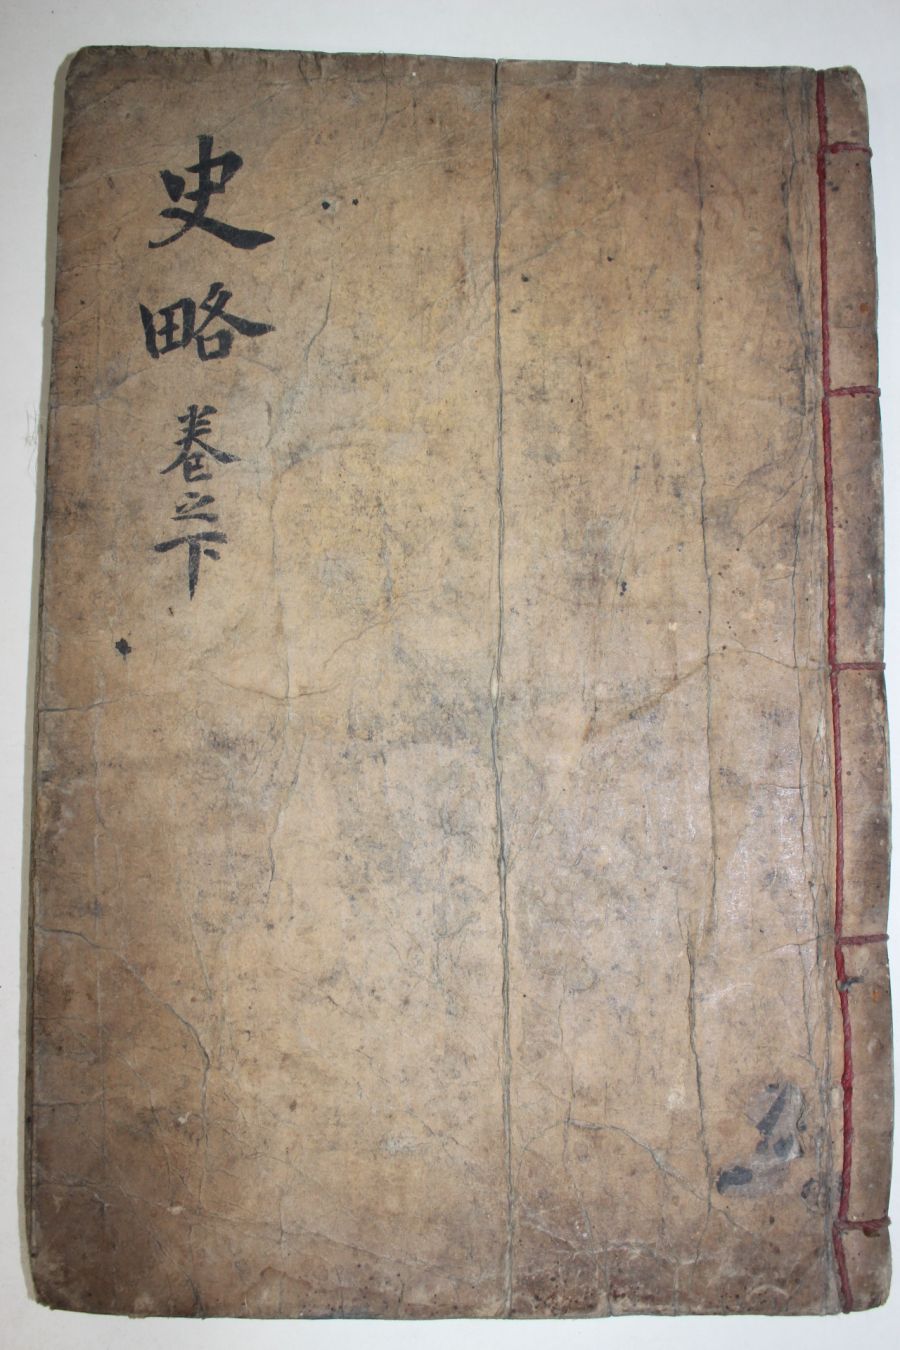 史略卷之下